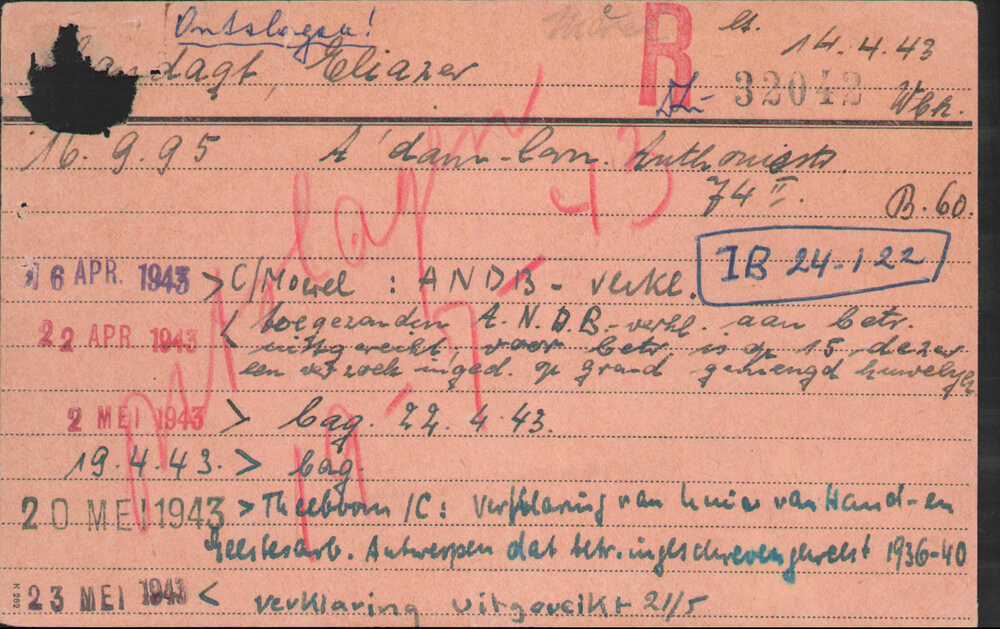 Ontslagen!
R
14.4.43
32042
ndagt, Eliazer
Wbk.
16.9.95 A'dam-
74 II. B.60.
IB 24-1-22
16 APR. 1943 > C/Moerel : ANDB - verkl.
22 APR. 1943 < toegezonden A.N.D.B-verkl. aan betr.
uitgereikt, voor betr. is op 15 dezer
een verzoek inged. op grond gemengd huwelijk
2 MEI 1943 > bag. 22.4.43.
19.4.43. > bag.
ontslagen
19-7-43
20 MEI 1943 > Theeboom /C: Verklaring van Unie van Hand-en
Geestesarb. Antwerpen dat betr. ingeschreven geweest 1936-40
23 MEI 1943 < verklaring uitgereikt 21/5
K 262